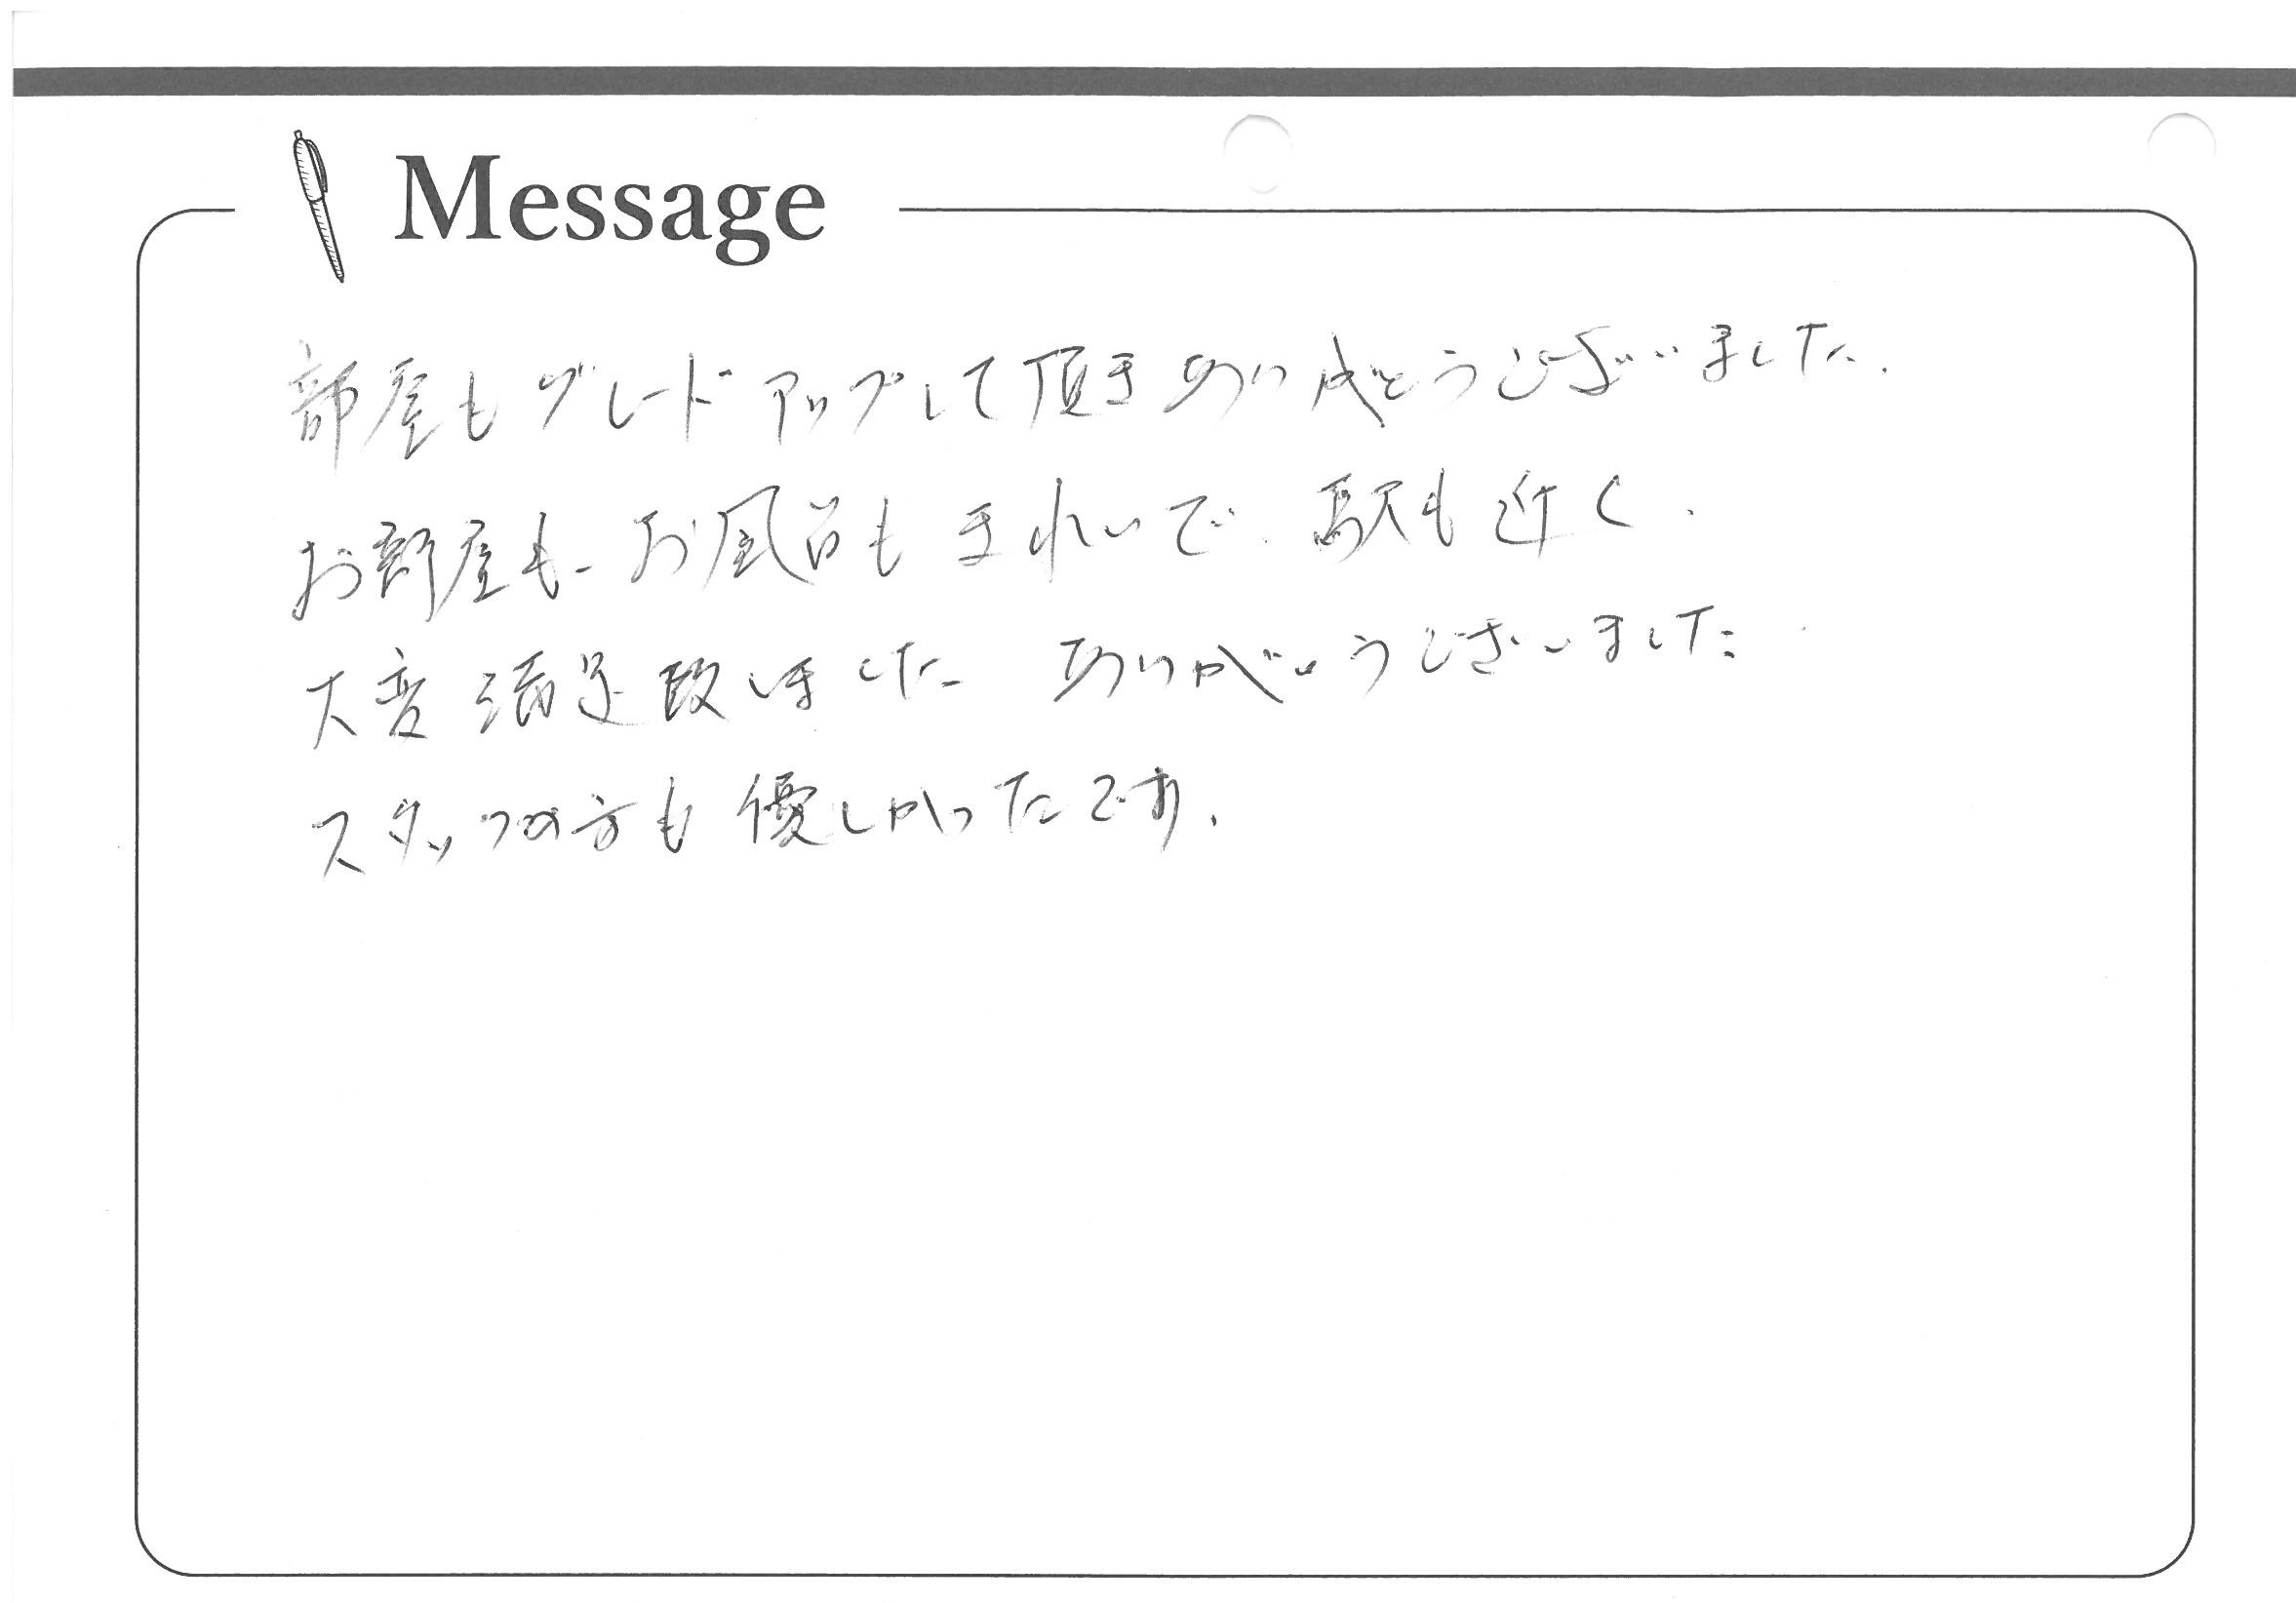 Message
部屋もグレードアップして頂きありがとうございました.
お部屋も、お風呂もきれいで、駅も近く、
大変満足致しました ありがとうございました
スタッフの方も優しかったです.